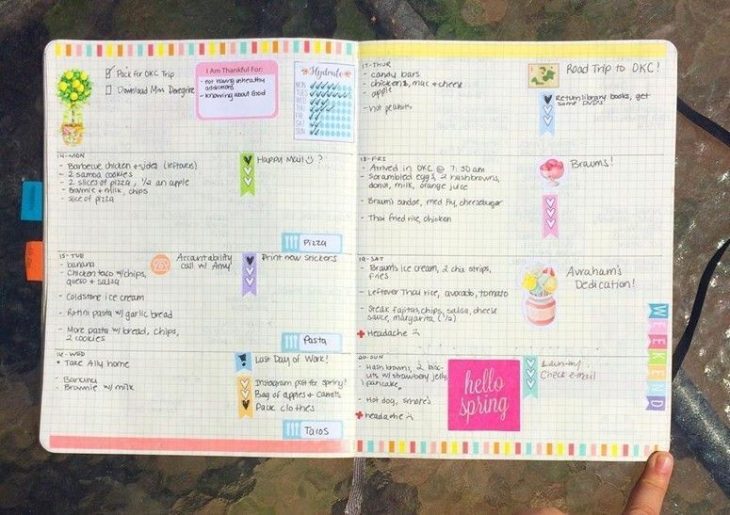 Pack for OKC Trip
Download Miss Peregrine
I Am Thankful For:
- not having unhealthy
addictions
- Knowing about God
Hydrate
MON
TUE
WED
THU
FRI
SAT
SUN
14-MON
- Barbecue chicken + (leftovers)
- 2 samoa cookies
- 2 slices of pizza, 1/2 an apple
- Brownie + milk, chips
- slice of pizza
Happy Mail ?
Pizza
15-TUE
- banana
- Chicken taco w/chips,
queso + salsa
- Coldstone ice cream
- Rotini pasta w/ garlic bread
- More pasta w/bread, chips,
2 cookies
Accountability
call w/ Amy
Print new stickers
Pasta
16-WED
Take Ally home
- Banana
- Brownie w/ milk
Last Day of Work!
Instagram post for Spring?
Bag of apples + carrots
Pack clothes
Tacos
17-THUR
- candy bars
- chicken, mac + cheese
- apple
- hot
Road Trip to OKC!
Return library books, get
some DVDs
18-FRI
- Arrived in OKC @ 7:30 am
- Scrambled eggs, 2 hashbrowns,
donut, milk, orange juice
- Braum's sundae, med fry, cheeseburger
- Thai fried rice, chicken
Braums!
19-SAT
- Braum's ice cream, 2 chix strips,
fries
- Leftover Thai rice, avocado, tomato
- Steak Fajitas, chips, salsa, cheese
sauce, margarita (1/2)
Headache
Avraham's
Dedication!
20-SUN
- Hash browns, 2 bisc-
uits w/ strawberry jelly,
1 pancake
- Hot dog, smores
headache
hello
spring
Laundry
Check email
WEEKEND